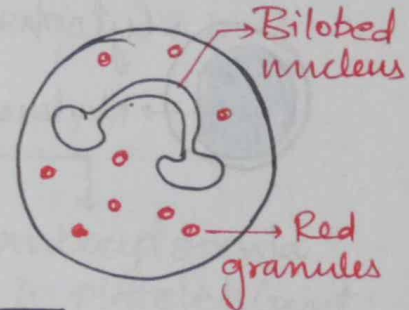 Bilobed
nucleus
Red
granules